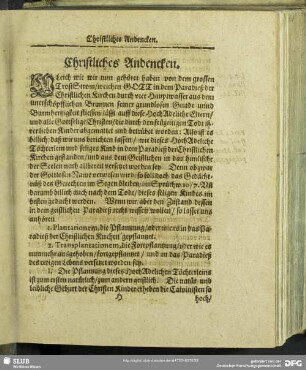 Christliches Andencken.
Christliches Andencken.
Gleich wie wir nun gehöret haben von dem grossen
Trost Strom, welchen GOTT in dem Paradieß der
Christlichen Kirchen durch vier Hauptwasser aus dem
unerschöpfflichen Brunnen seiner grundlosen Gnade und
Barmhertzigkeit fliessen läst auff diese HochAdeliche Eltern/
und alle Gottselige Christen/die durch den frühzeitigen Todt ih-
rer lieben Kinder abgemattet und betrübet worden: Also ist es
billich/ daß wir uns berichten lassen/ wie dieses HochAdeliche
Töchterlein und seliges Kind in dem Paradieß der Christlichen
Kirchen gestanden/und aus dem Geistlichen in das himlische
der Seelen nach allbereit versetzet worden sey. Denn ob zwar
der Gottlosen Name verwesen wird/ so soll doch das Gedächt-
nüß des Gerechten im Segen bleiben/
darumb billich auch nach dem Tode/ dieses seligen Kindes am
besten gedacht werden. Wenn wir aber den Zustand dessen
in dem geistlichen Paradieß recht wissen wollen/ so lasset uns
anhören
1. Plantationem, die Pflantzung/ oder wie es in das Pa-
radieß der Christlichen Kirchen gepflantzet.
2. Transplantationem, die Fortpflantzung/ oder wie es
nunmehr aus
des ewigen Lebens versetzet worden sey.
1. Die Pflantzung dieses HochAdelichen Töchterleins
ist zum ersten natürlich/ zum andern geistlich. Die natür- und
leibliche Geburt der Christen Kinder erheben die Calvinisten so
H
hoch/
SLUB
Wir führen Wissen.